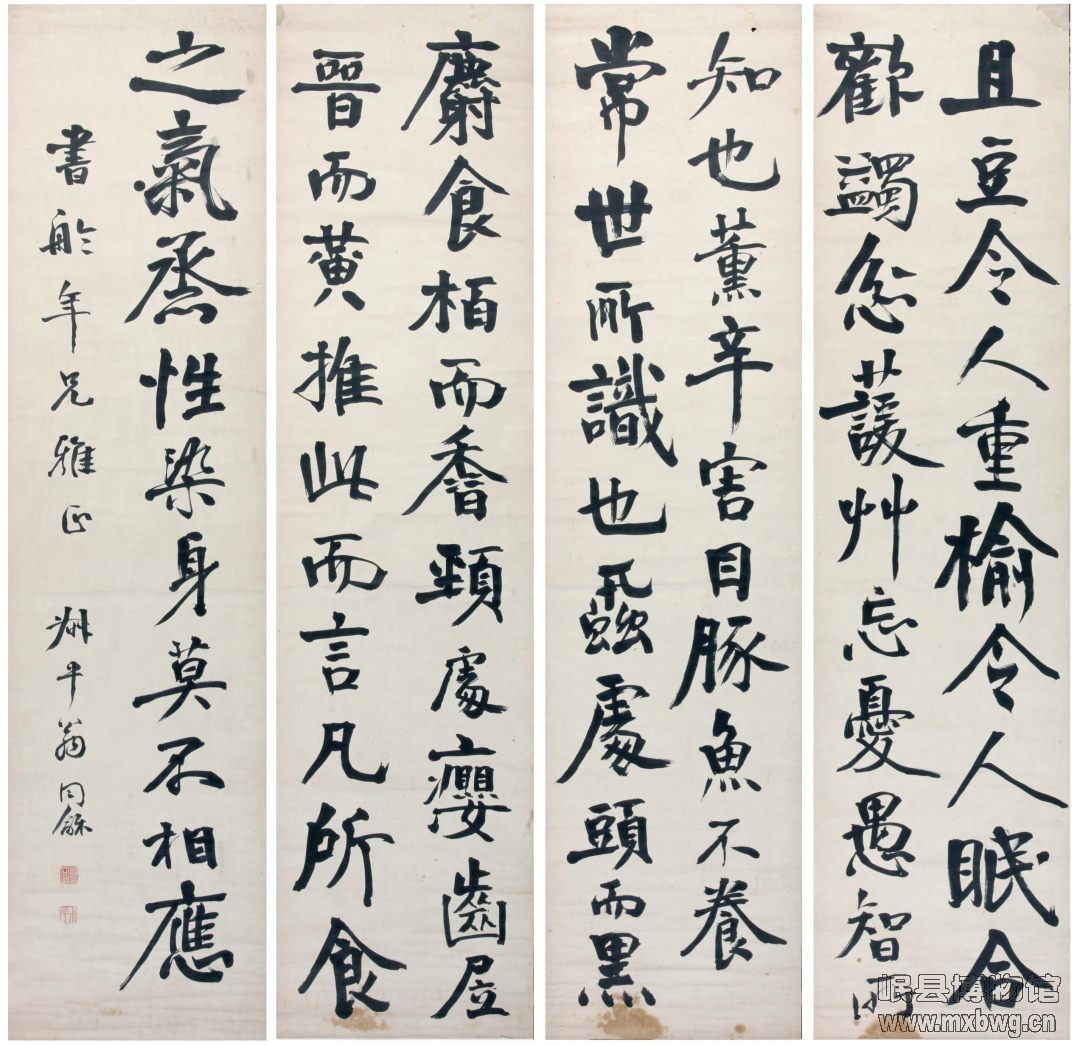 且豆令人重榆令人眠合
歡蠲忿蘐艸忘憂愚智所
知也薰辛害目豚魚不養
常世所識也蝨處頭而黑
麝食栢而香頸處癭齒居
晉而黃推此而言凡所食
之氣烝性染身莫不相應
書舲年兄雅正 叔平翁同龢
岷县博物馆
www.mxbwg.cn